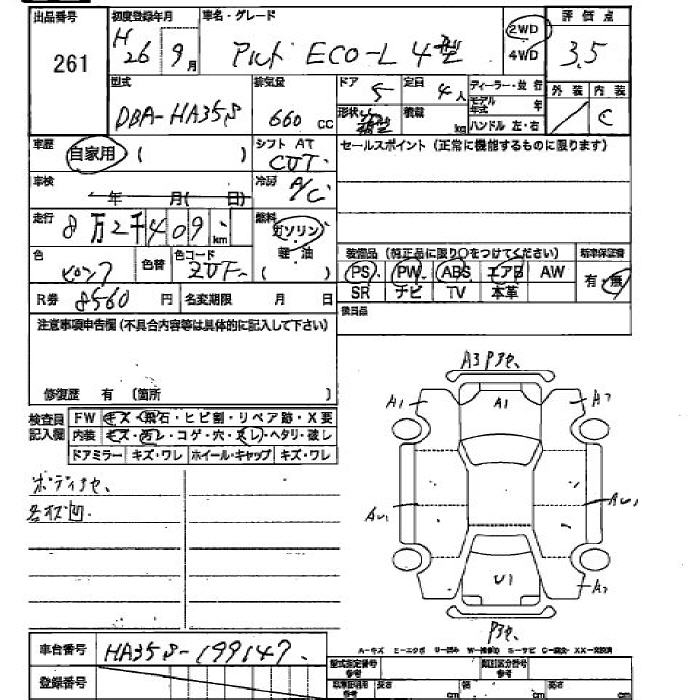 出品番号 初度登録年月 車名・グレード 評価点
261 H26 9月 アルト ECO-L 4型 2WD 4WD 3.5
型式 排気量 ドア 定員 ディーラー・並行 外装 内装
DBA-HA35S 660 CC 5 4人 モデル年式 年 C
形状 積載 kg ハンドル 左・右
車歴 自家用 ( ) シフト AT CVT セールスポイント (正常に機能するものに限ります)
車検 年 月( 日) 冷房 A/C
走行 8万2千409 km 燃料 ガソリン 軽油 ( )
色 ピンク 色替 色コード ZVF 装備品 (純正品に限り○をつけてください) 新車保証書
PS PW ABS エアB AW 有・無
R券 8560円 名変期限 月 日 SR ナビ TV 本革
注意事項申告欄 (不具合内容等は具体的に記入して下さい) 後日品
修復歴 有 (箇所 )
検査員記入欄 FW キズ・飛石・ヒビ割・リペア跡・X要
内装 キズ・汚レ・コゲ・穴・スレ・ヘタリ・破レ
ドアミラー キズ・ワレ ホイール・キャップ キズ・ワレ
A1 A1 A2
AU1 AU1
U1 A2
車台番号 HA35S-199147
登録番号 型式指定番号 参考 類別区分番号 参考
長さ cm cm cm